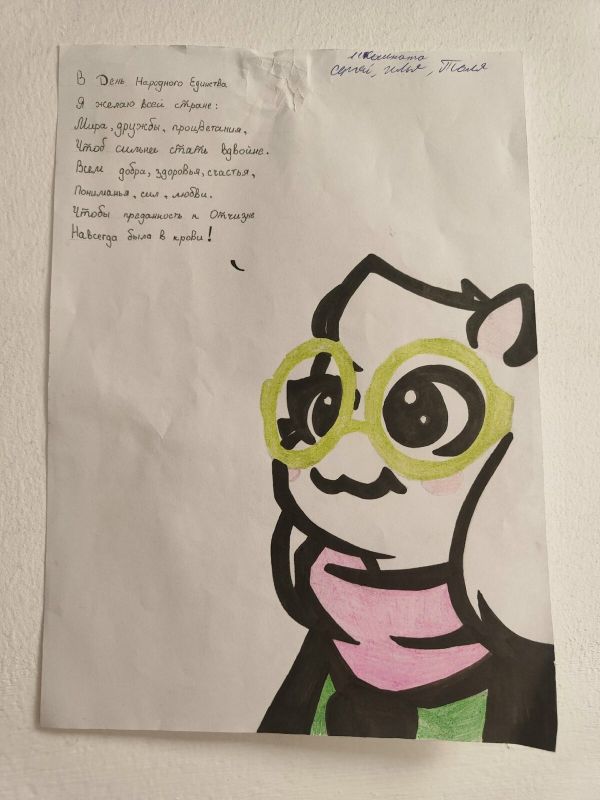 11 комната
Сергей, Илья, Толя
В День Народного Единства
Я желаю всей стране:
Мира, дружбы, процветания,
Чтоб сильнее стать вдвойне.
Всем добра, здоровья, счастья,
Пониманья, сил, любви.
Чтобы преданность к Отчизне
Навсегда была в крови!